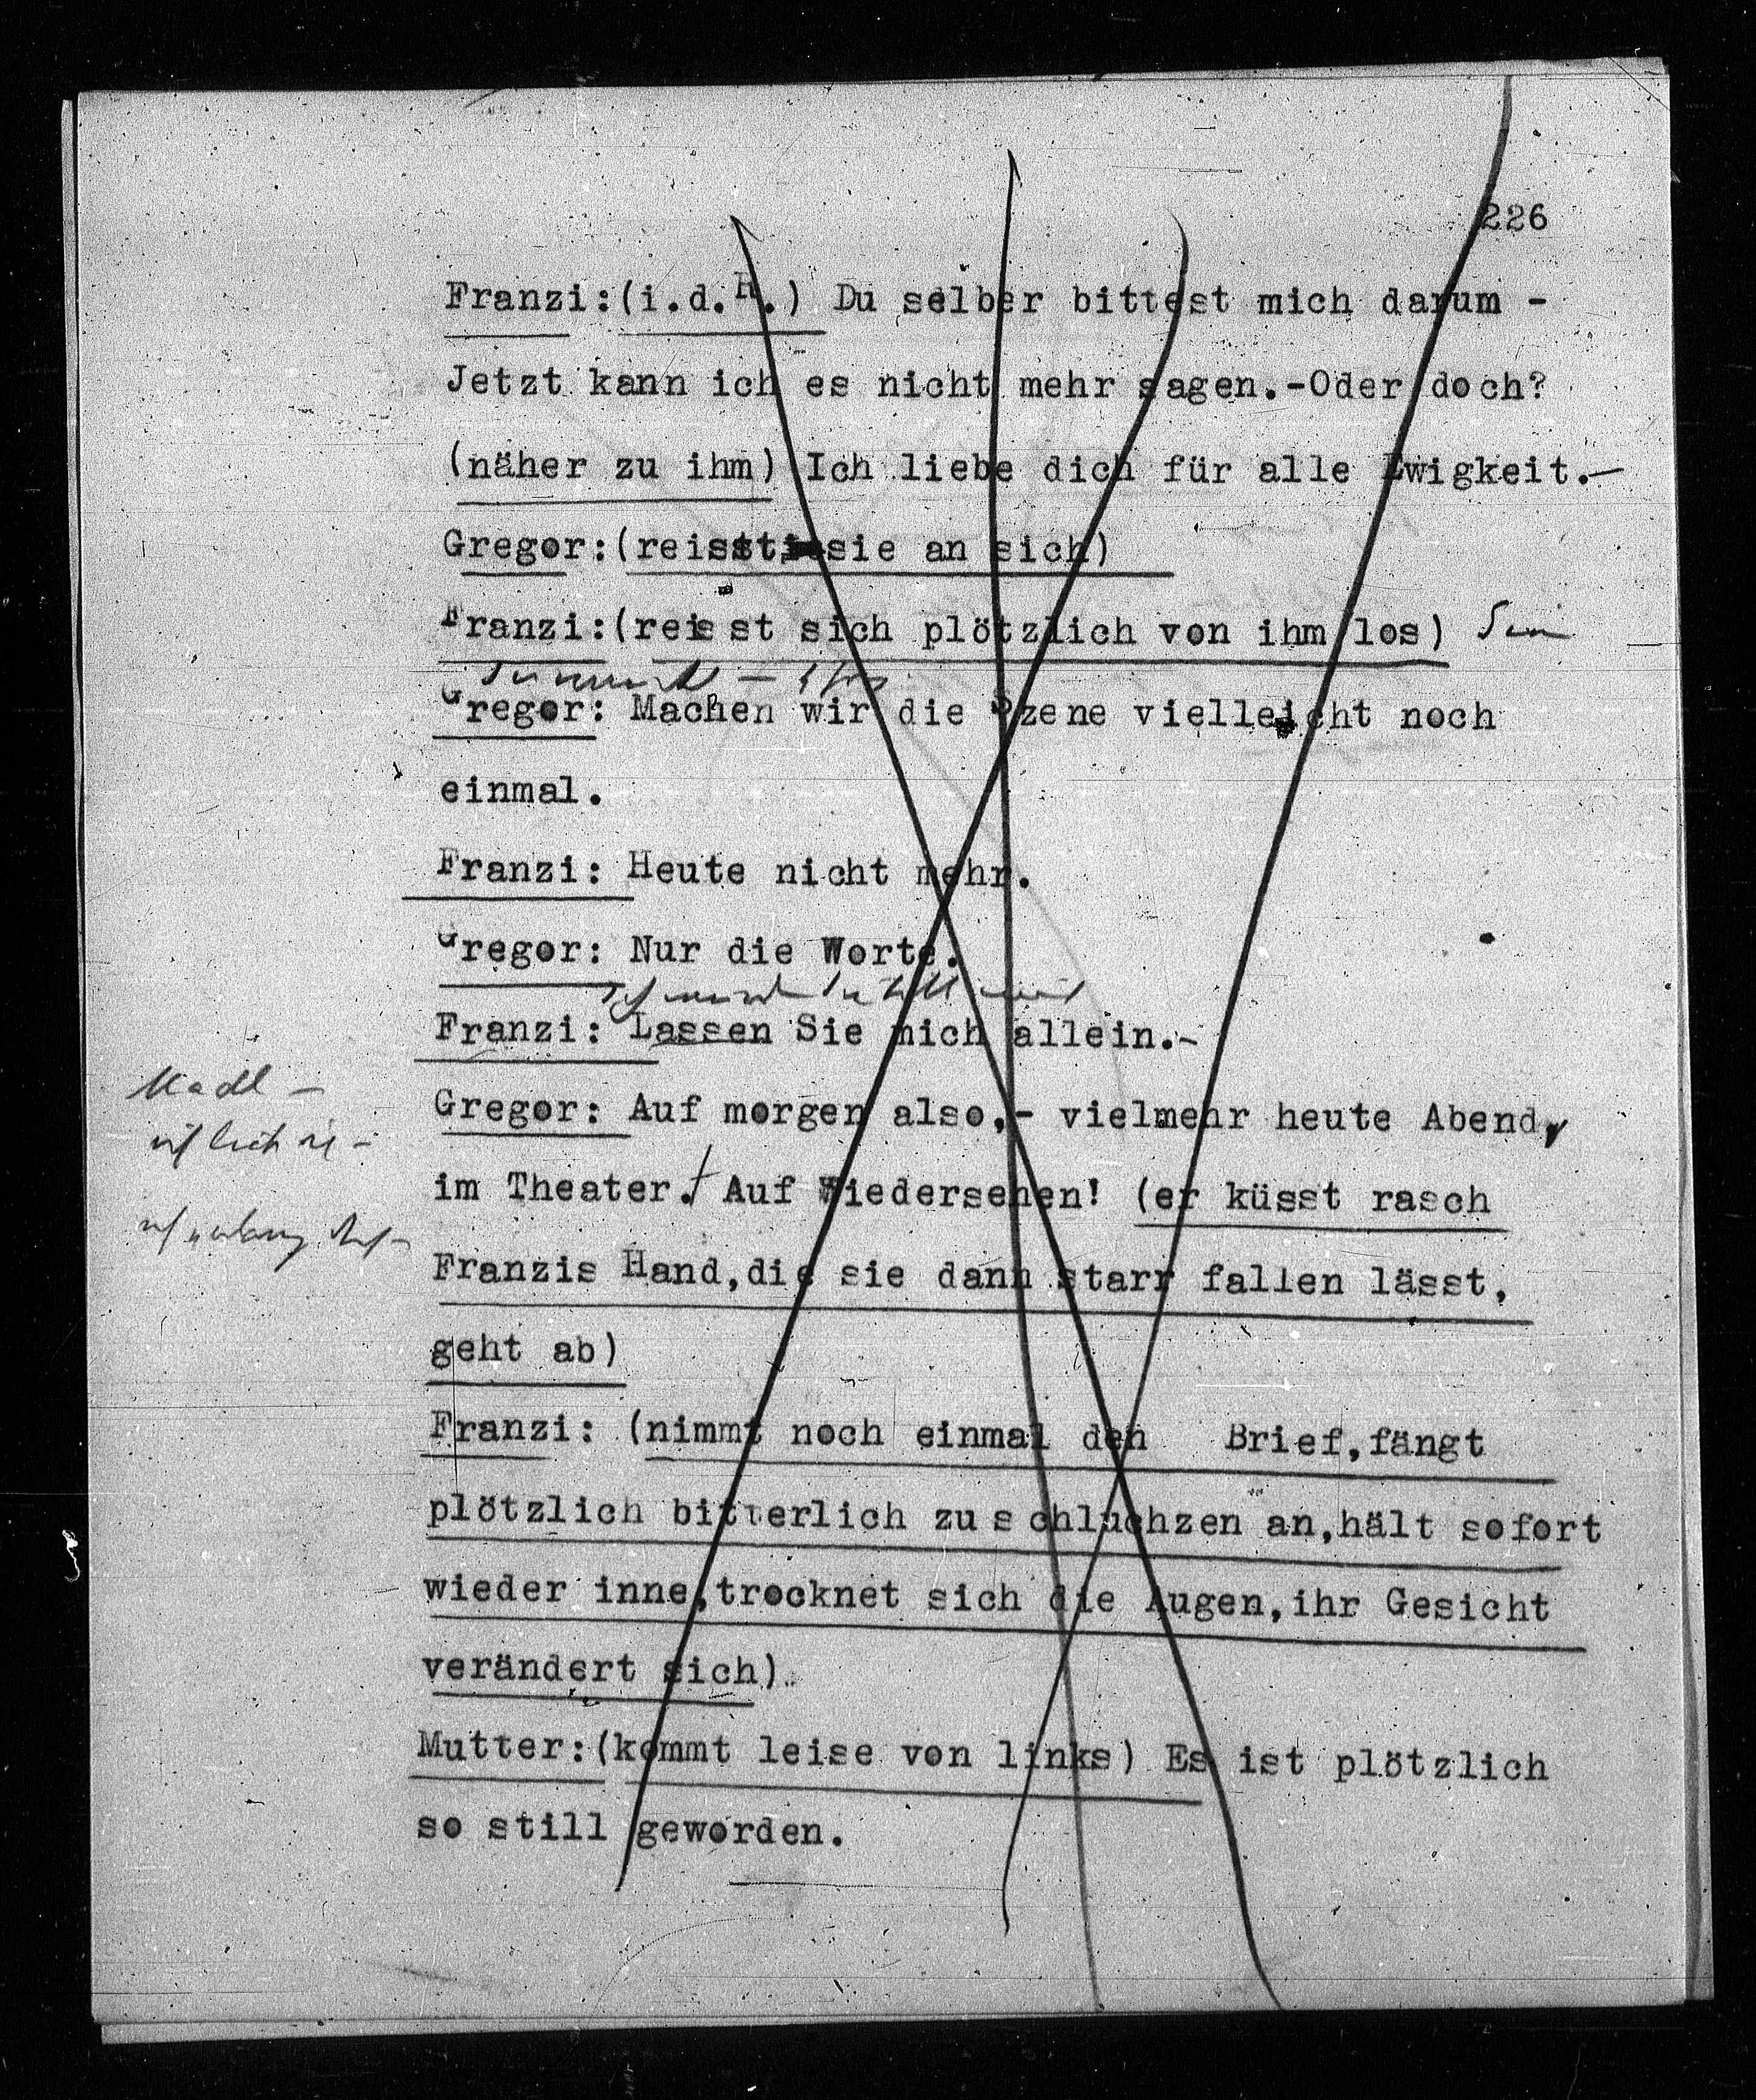 226
Franzi:(i.d.R.) Du selber bittest mich darum -
Jetzt kann ich es nicht mehr sagen.-Oder doch?
(näher zu ihm) Ich liebe dich für alle Ewigkeit.-
Gregor:(reisst sie an sich)
Franzi:(reisst sich plötzlich von ihm los)
Gregor: Machen wir die Szene vielleicht noch
einmal.
Franzi: Heute nicht mehr.
Gregor: Nur die Worte.
Franzi: Lassen Sie mich allein.-
Gregor: Auf morgen also,- vielmehr heute Abend,
im Theater. Auf Wiedersehen! (er küsst rasch
Franzis Hand,die sie dann starr fallen lässt,
geht ab)
Franzi: (nimmt noch einmal den Brief,fängt
plötzlich bitterlich zu schluchzen an,hält sofort
wieder inne,trocknet sich die Augen,ihr Gesicht
verändert sich).
Mutter:(kommt leise von links) Es ist plötzlich
so still geworden.